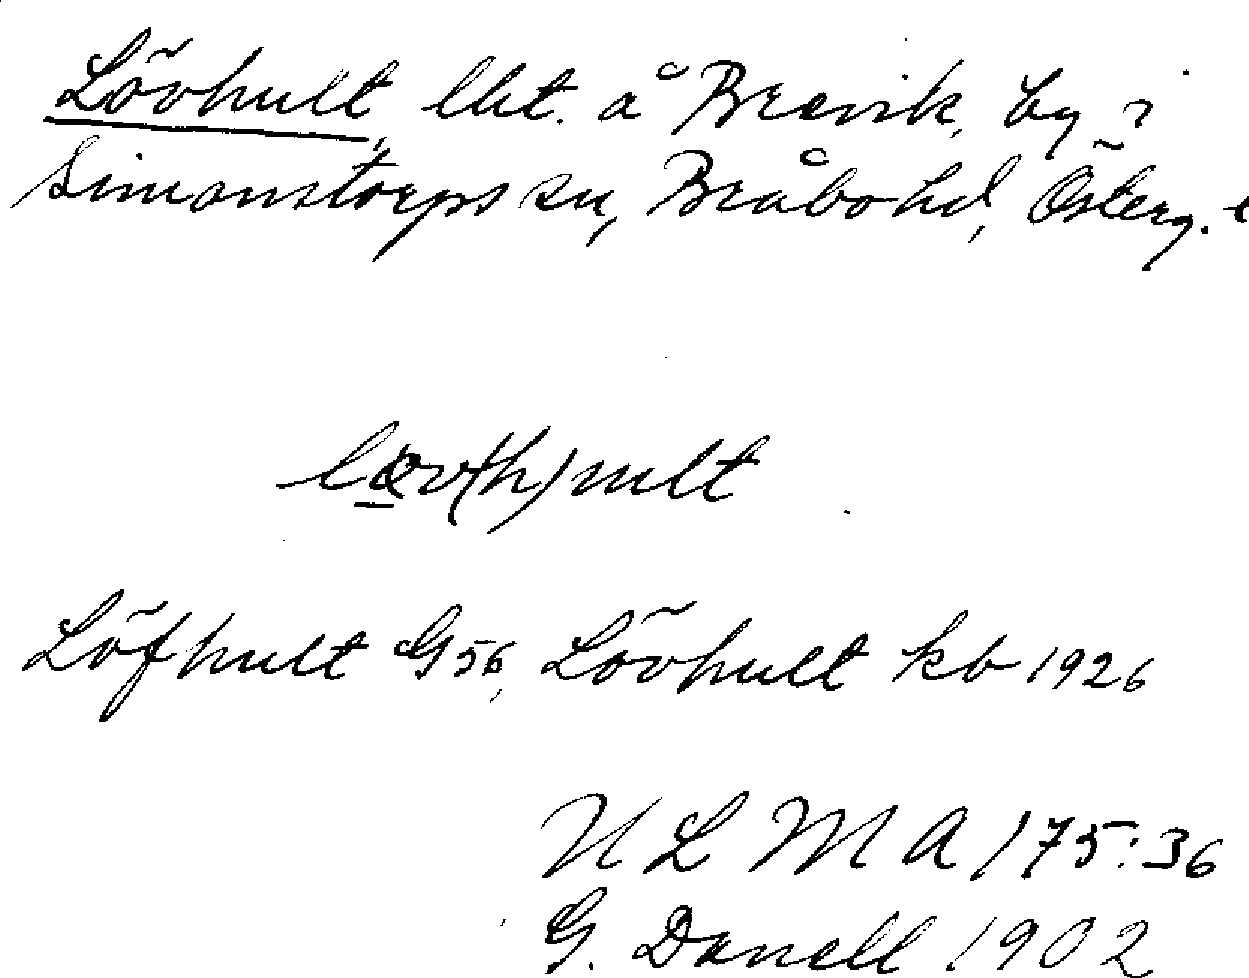 Lövhult, lht. å Breavik, by i
Simonstorps sn, Bråbo hd, Österg. l
Löfhult G 56, Lövhult kb 1926
ULMA 175:36
G. Danell 1902